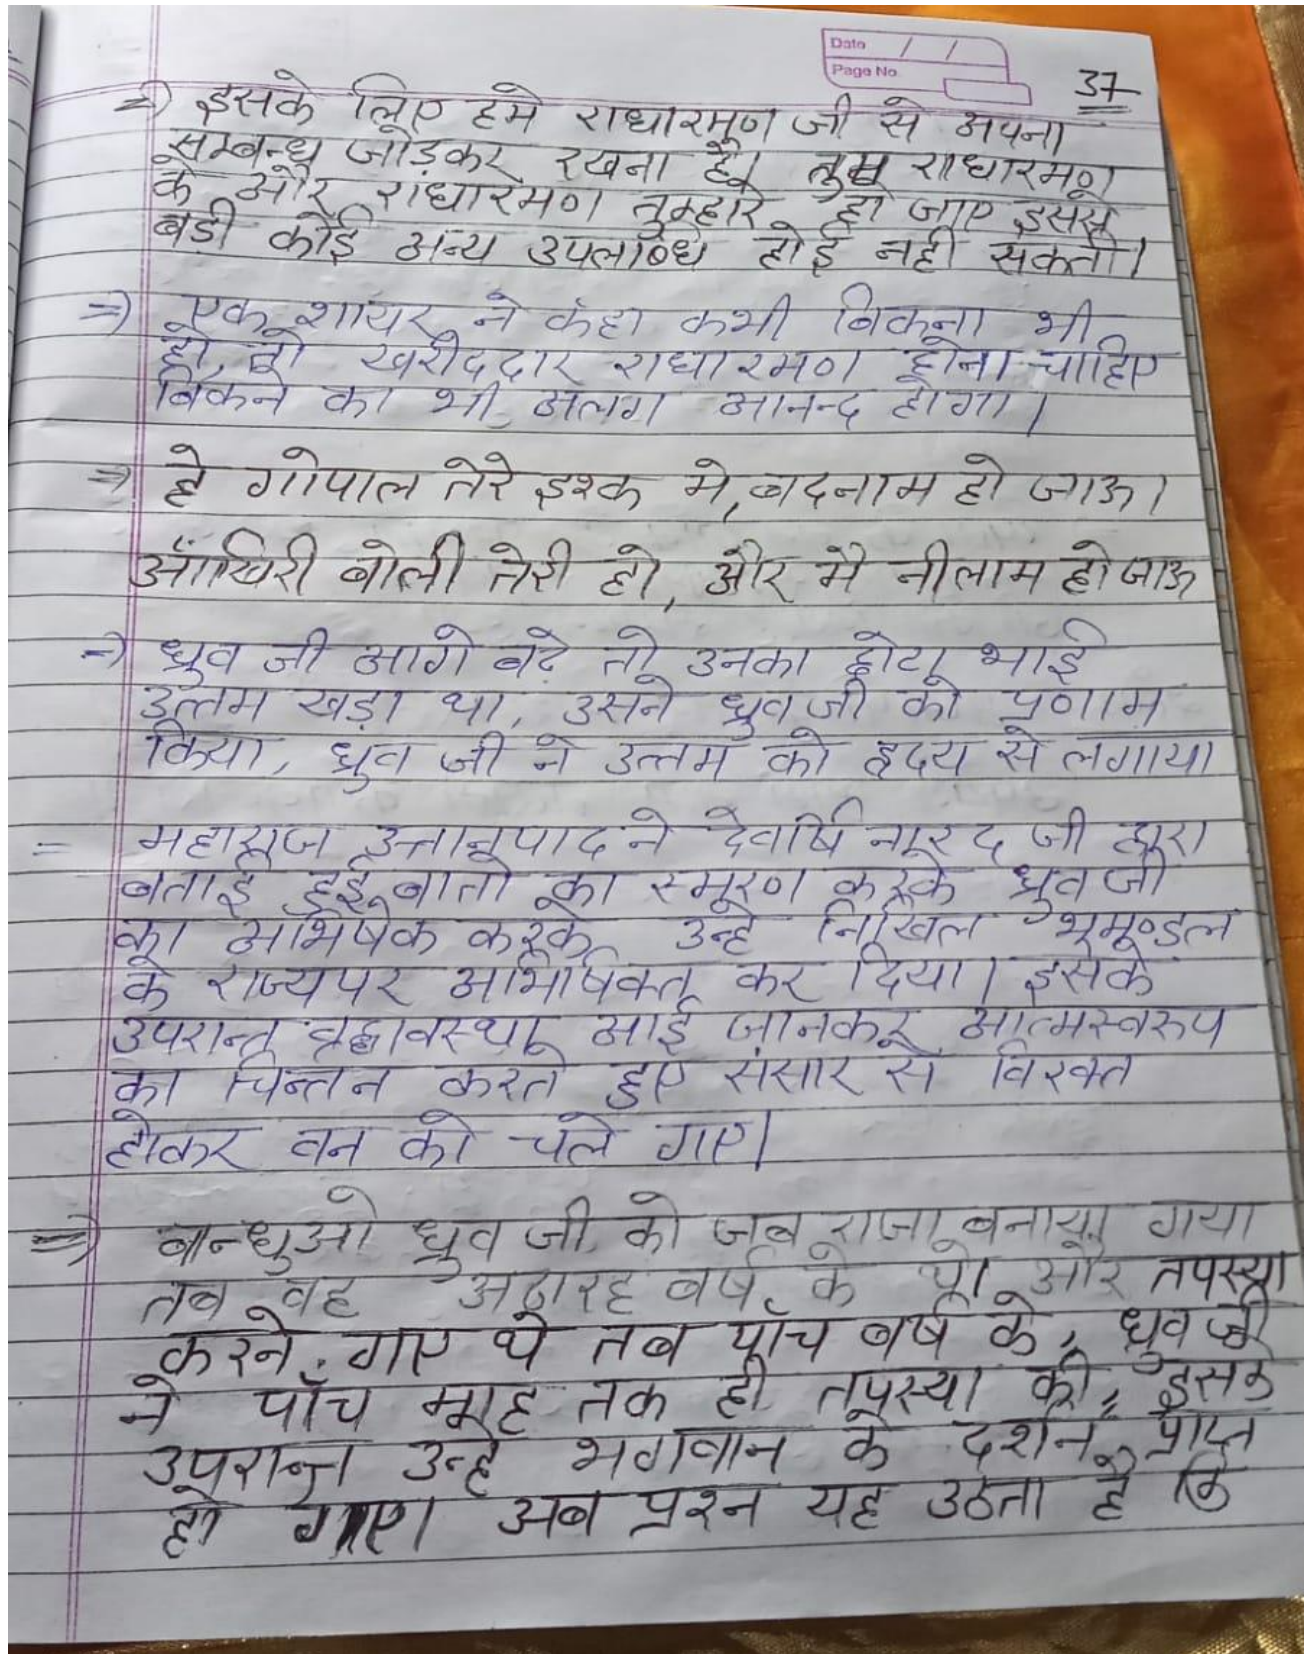 Date / /
Page No.
37
=) इसके लिए हमे राधारमण जी से अपना
सम्बन्ध जोड़कर रखना है। तुम राधारमण
के और राधारमण तुम्हारे हो जाए इससे
बडी कोई अन्य उपलब्धि होई नही सकती।
=) एक शायर ने कहा कभी बिकना भी
हो, तो खरीददार राधारमण होना चाहिए
बिकने का भी अलग आनन्द होगा।
=) हे गोपाल तेरे इश्क मे, बदनाम हो जाऊ।
आँखिरी बोली तेरी हो, और मै नीलाम हो जाऊ
=) ध्रुव जी आगे बढे तो उनका छोटा भाई
उत्तम खड़ा था, उसने ध्रुव जी को प्रणाम
किया, ध्रुव जी ने उत्तम को हृदय से लगाया
= महाराज उत्तानपाद ने देवर्षि नारद जी द्वारा
बताई हुई बातो का स्मरण करके ध्रुव जी
का अभिषेक करके उन्हे निखिल भूमण्डल
के राज्य पर अभिषिक्त कर दिया। इसके
उपरान्त व्रद्धावस्था आई जानकर आत्मस्वरुप
का चिन्तन करते हुए संसार से विरक्त
होकर वन को चले गए।
=) बन्धुओ ध्रुव जी को जब राजा बनाया गया
तब वह अठारह बर्ष के थे। और तपस्या
करने गए थे तब पाँच बर्ष के, ध्रुव जी
ने पाँच माह तक ही तपस्या की, इसके
उपरान्त उन्हे भगवान के दर्शन प्राप्त
हो गए। अब प्रश्न यह उठता है कि